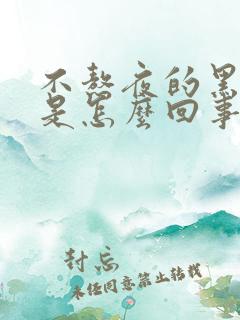 不熬夜的黑
是怎麼回事
封忘
未經同意禁止轉載